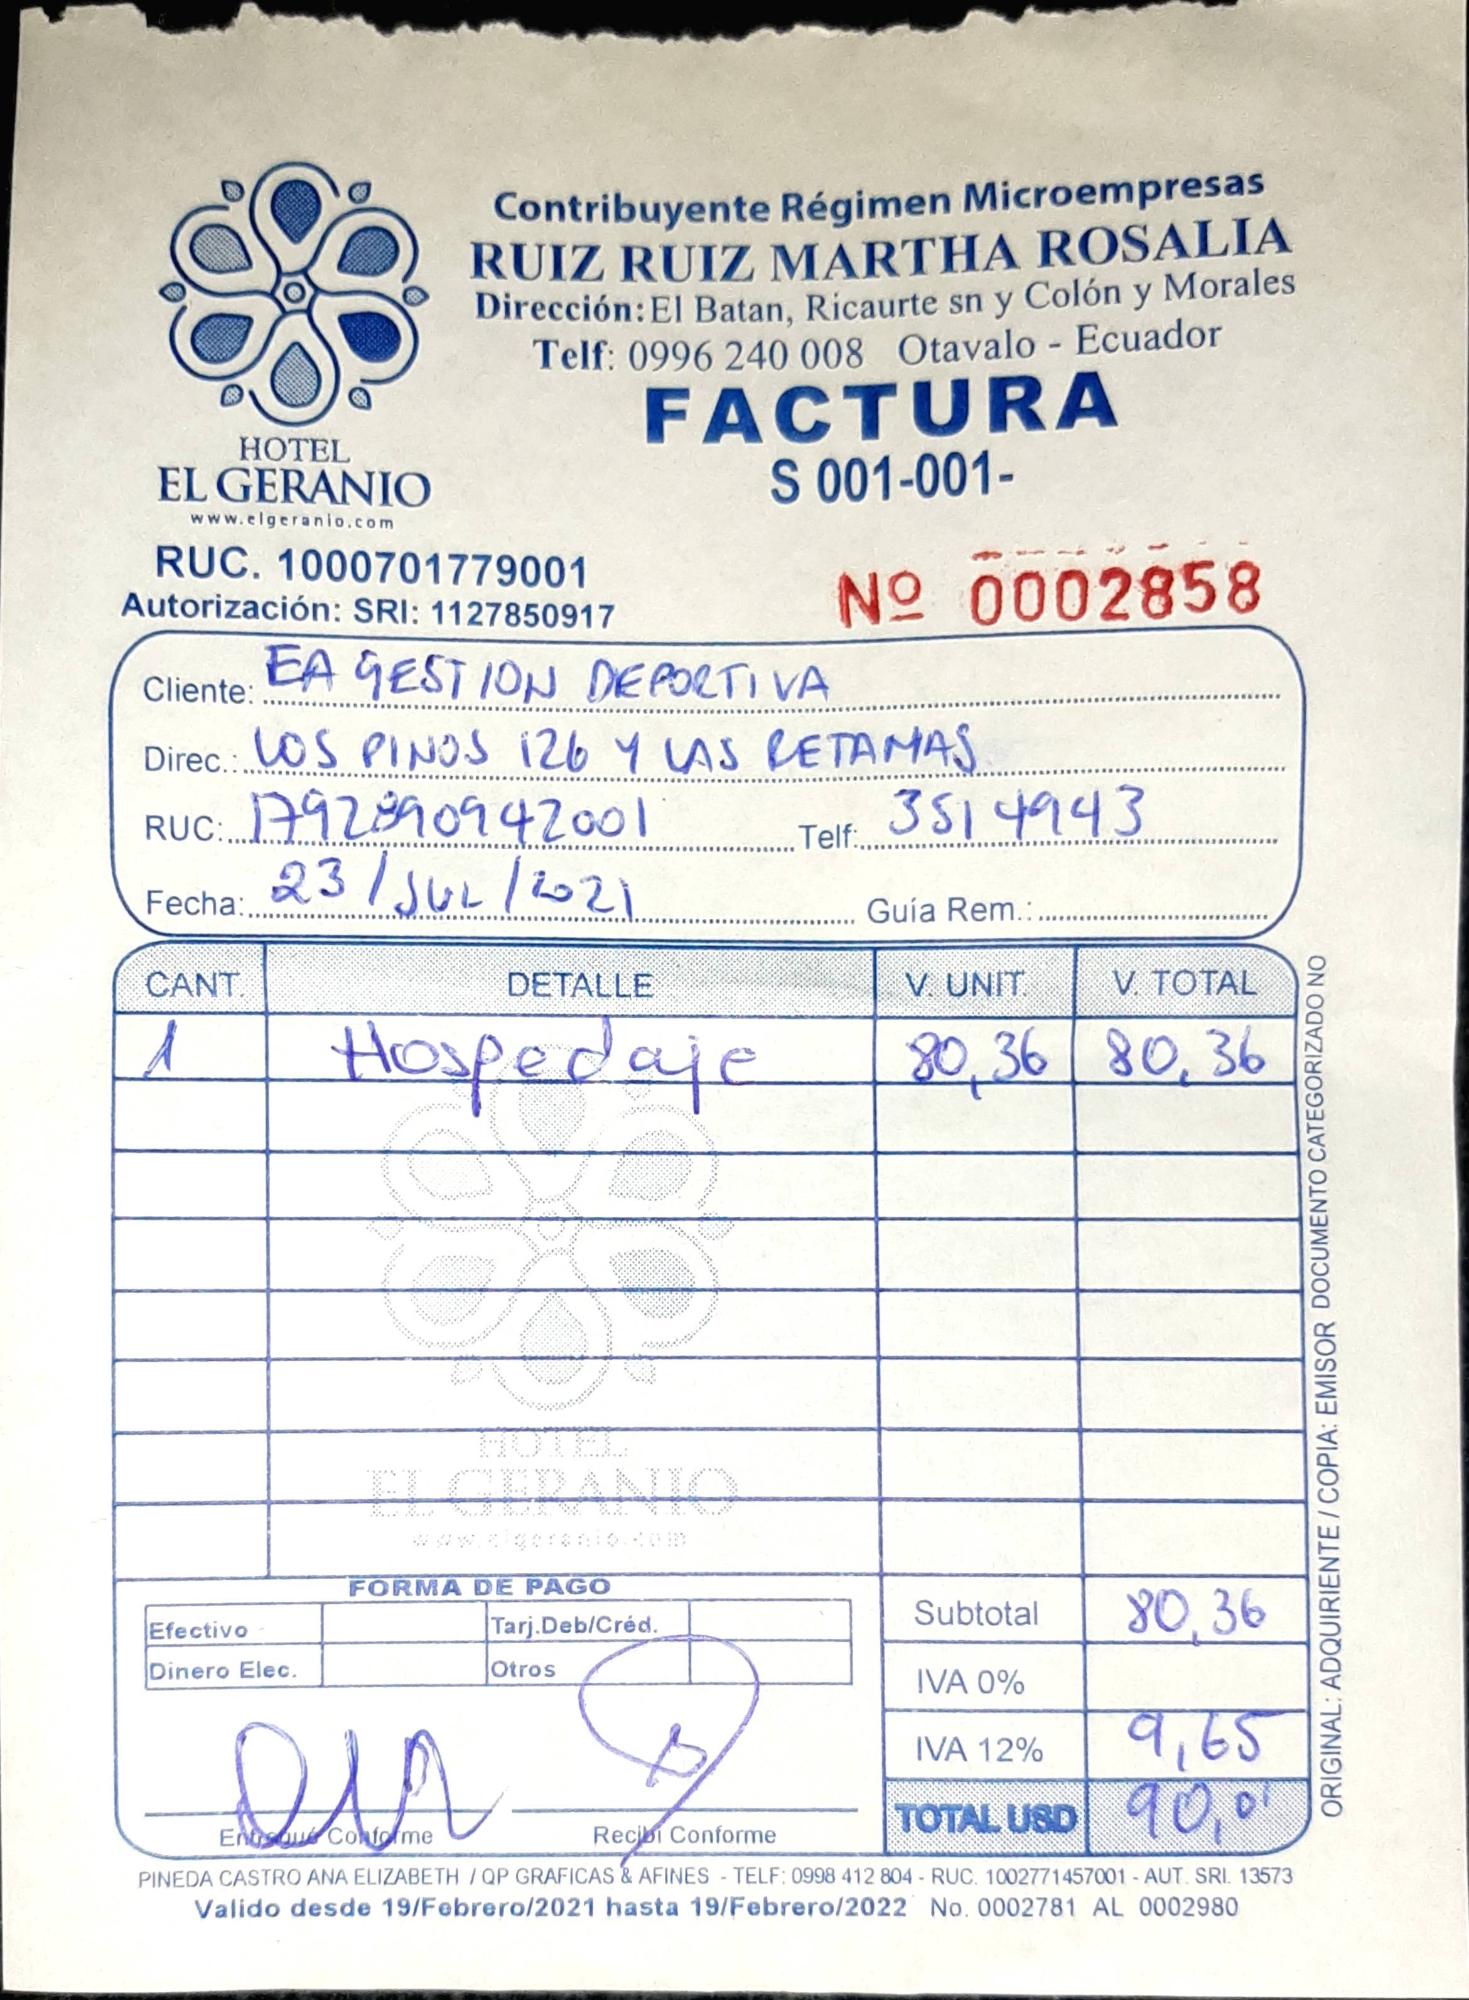 Contribuyente Régimen Microempresas
RUIZ RUIZ MARTHA ROSALIA
Dirección: El Batan, Ricaurte sn y Colón y Morales
Telf: 0996 240 008 Otavalo - Ecuador
FACTURA
S 001-001-
HOTEL
EL GERANIO
www.elgeranio.com
RUC. 1000701779001
Autorización: SRI: 1127850917
Nº 0002858
Cliente: EA GESTION DEPORTIVA
Direc.: LOS PINOS 126 Y LAS RETAMAS
RUC: 1792890942001 Telf: 3514943
Fecha: 23/JUL/2021 Guía Rem.:
CANT. DETALLE V. UNIT. V. TOTAL
1 Hospedaje 80,36 80,36
HOTEL
EL GERANIO
www.elgeranio.com
FORMA DE PAGO
Efectivo Tarj.Deb/Créd.
Dinero Elec. Otros
Subtotal 80,36
IVA 0%
IVA 12% 9,65
TOTAL USD 90,01
Entregué Conforme Recibí Conforme
ORIGINAL: ADQUIRIENTE / COPIA: EMISOR DOCUMENTO CATEGORIZADO NO
PINEDA CASTRO ANA ELIZABETH / QP GRAFICAS & AFINES - TELF: 0998 412 804 - RUC. 1002771457001 - AUT. SRI. 13573
Valido desde 19/Febrero/2021 hasta 19/Febrero/2022 No. 0002781 AL 0002980